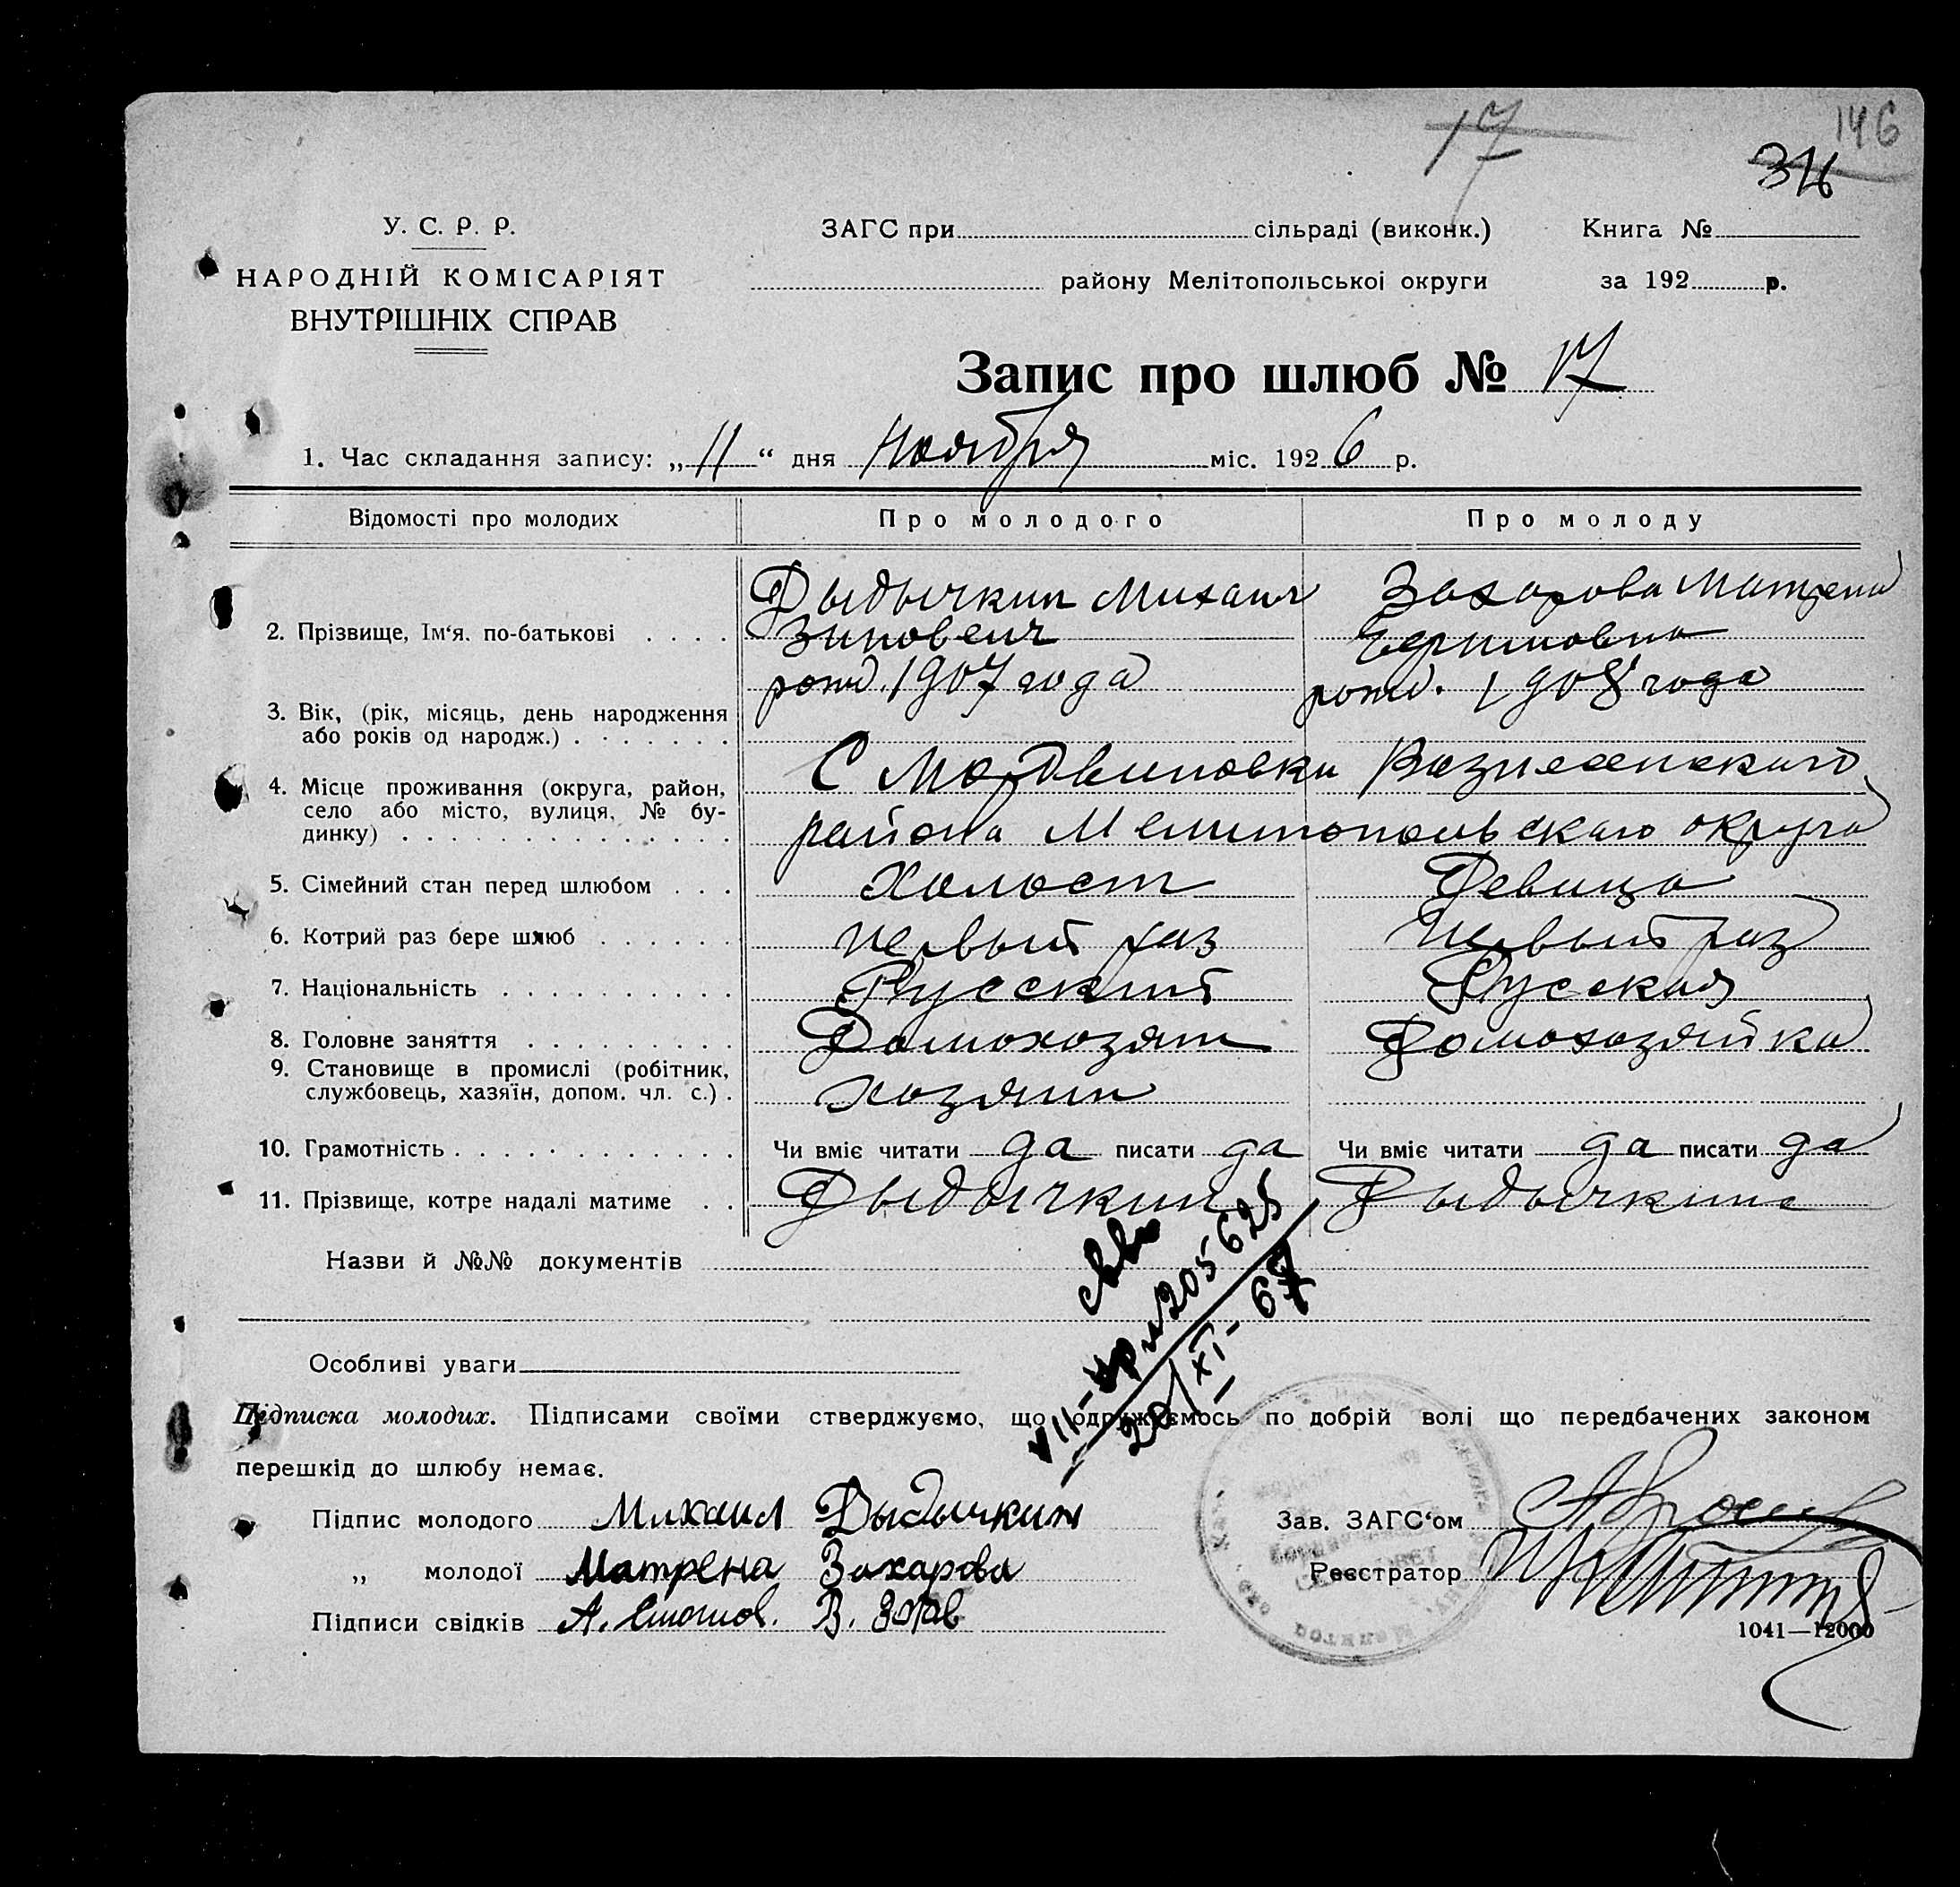 146
17
34
У. С. Р. Р.
НАРОДНІЙ КОМІСАРІЯТ
ВНУТРІШНІХ СПРАВ
ЗАГС при сільраді (виконк.)
району Мелітопольської округи
Книга №
за 192 р.
Запис про шлюб № 17
1. Час складання запису: „11“ дня Ноября міс. 1926 р.
Відомості про молодих Про молодого Про молоду
2. Прізвище, Ім‘я. по-батькові
Дыдычкин Михаил
Зиновеич
Захарова Матрена
3. Вік, (рік, місяць, день народження
або років од народж.)
рожд. 1907 года
рожд. 1908 года
4. Місце проживання (округа, район,
село або місто, вулиця, № бу-
динку)
С Мордвиновки Вознесенскаго
района Мелитопольскаго округа
5. Сімейний стан перед шлюбом Холост Девица
6. Котрий раз бере шлюб первый раз первый раз
7. Національність Русский Русская
8. Головне заняття Домохозяин Домохозяйка
9. Становище в промислі (робітник,
службовець, хазяїн, допом. чл. с.) хозяин
10. Грамотність Чи вміє читати да писати да Чи вміє читати да писати да
11. Прізвище, котре надалі матиме Дыдычкин Дыдычкина
Назви й №№ документів
VII-  205625
20/XI-67
Особливі уваги
Підписка молодих. Підписами своїми стверджуємо, що одружуємось по добрій волі що передбачених законом
перешкід до шлюбу немає.
Підпис молодого Михаил Дыдычкин
„ молодої Матрена Захарова
Підписи свідків А. В.
Зав. ЗАГС‘ом
Реєстратор
1041—12000